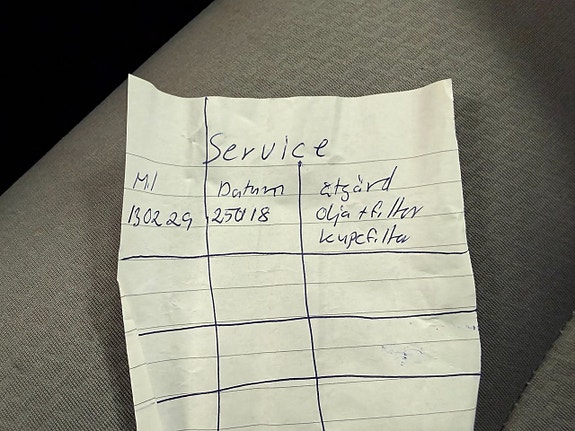 Service
Mil Datum Åtgärd
130229 250118 Olja + filter
kupefilter